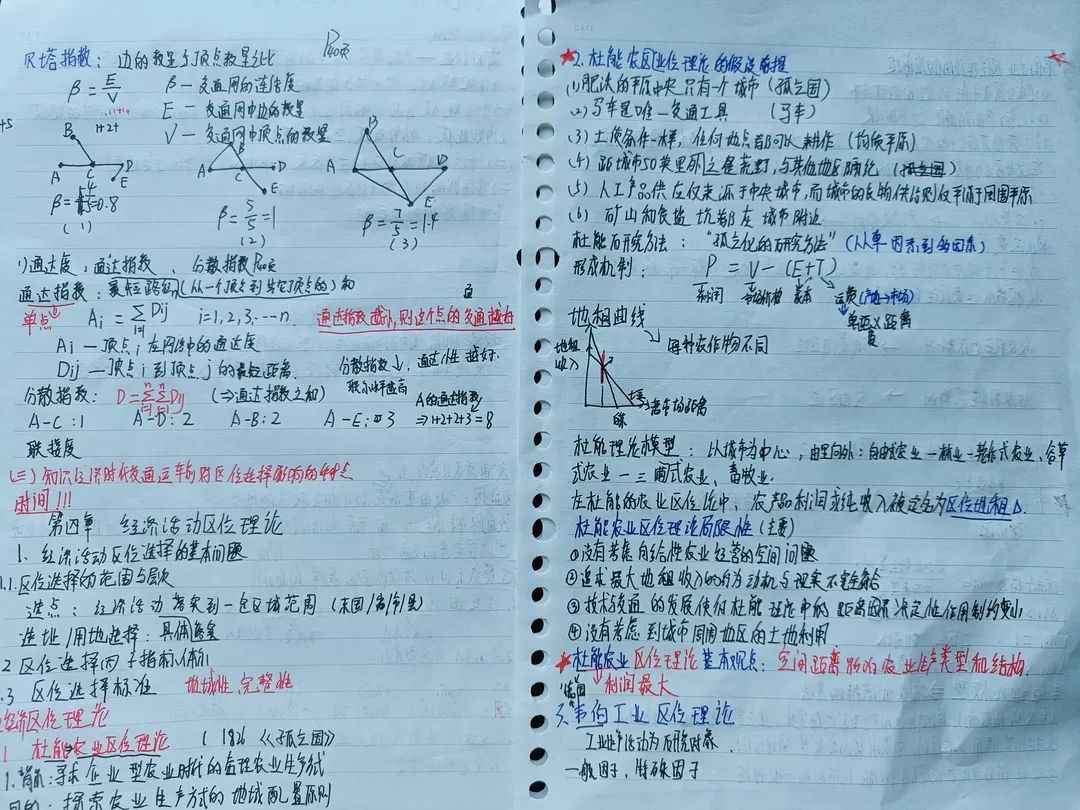 P40页
贝塔指数: 边的数量与顶点数量之比
β = E/V
β — 交通网的连结度
E — 交通网中边的数量
V — 交通网中顶点的数量
1+2+
B
A
C
D
E
β = 4/5 = 0.8
(1)
B
A
C
D
E
β = 5/5 = 1
(2)
B
A
C
D
E
β = 7/5 = 1.4
(3)
1)通达度,通达指数、分散指数P40页
通达指数: 最短路径(从一个顶点到其它顶点的)和
单点
Ai = ΣDij i=1,2,3,…n
通达指数越小,则这个点的交通越好
Ai — 顶点i在网络中的通达度
Dij — 顶点i到顶点j的最短距离
分散指数↓, 通达性越好.
联系水平越高
分散指数: D=ΣΣDij (⇒通达指数之和)
A的通达指数
⇒1+2+2+3=8
A-C:1 A-D:2 A-B:2 A-E:3
联接度
(三)知识经济时代交通运输对区位选择影响的特点
时间!!!
第四章 经济活动区位理论
1. 经济活动区位选择的基本问题
1.1.区位选择的范围与层次
选点: 经济活动落实到一个区域范围 (某国/省/市/县)
选址/用地选择: 具体落实
2 区位选择的 指标体系
.3 区位选择标准 地域性、完整性
经济区位理论
1 杜能农业区位理论 (1826《孤立国》)
1.背景:寻求企业型农业时代的合理农业生产方式
目的: 探索农业生产方式的地域配置原则
★2. 杜能农业区位理论的假设前提
(1)肥沃的平原中央只有一个城市 (孤立国)
(2)马车是唯一交通工具 (马车)
(3)土质条件一样,任何地点都可以耕作 (均质平原)
(4)距城市50英里外之是荒野,与其他地区隔绝 (孤立国)
(5)人工产品供应仅来源于中央城市,而城市的食物供给则仅来源于周围平原
(6)矿山和食盐坑都在城市附近
杜能研究方法: “孤立化的研究方法” (从单因素到多因素)
形成机制: P = V - (E+T)
利润 市场价格 成本 运费(产地→市场)
单距×距离
地租曲线
→每种农作物不同
地租
收入
离市场距离
杜能理论模型: 以城市为中心,由里向外: 自由式农业—林业—轮作式农业、谷草
式农业—三圃式农业、畜牧业.
在杜能的农业区位论中,农产品利润或纯收入被定名为区位地租△
杜能农业区位理论局限性 (主要)
①没有考虑自给性农业经营的空间问题
②追求最大地租收入的行为动机与现实不完全符合
③技术与交通的发展使得杜能理论中的距离因素决定性作用制约变小
④没有考虑到城市周围地区的土地利用
★杜能农业区位理论基本观点: 空间距离影响农业生产类型和结构.
→利润最大
3.韦伯工业区位理论
工业生产活动为研究对象
一般因子,特殊因子